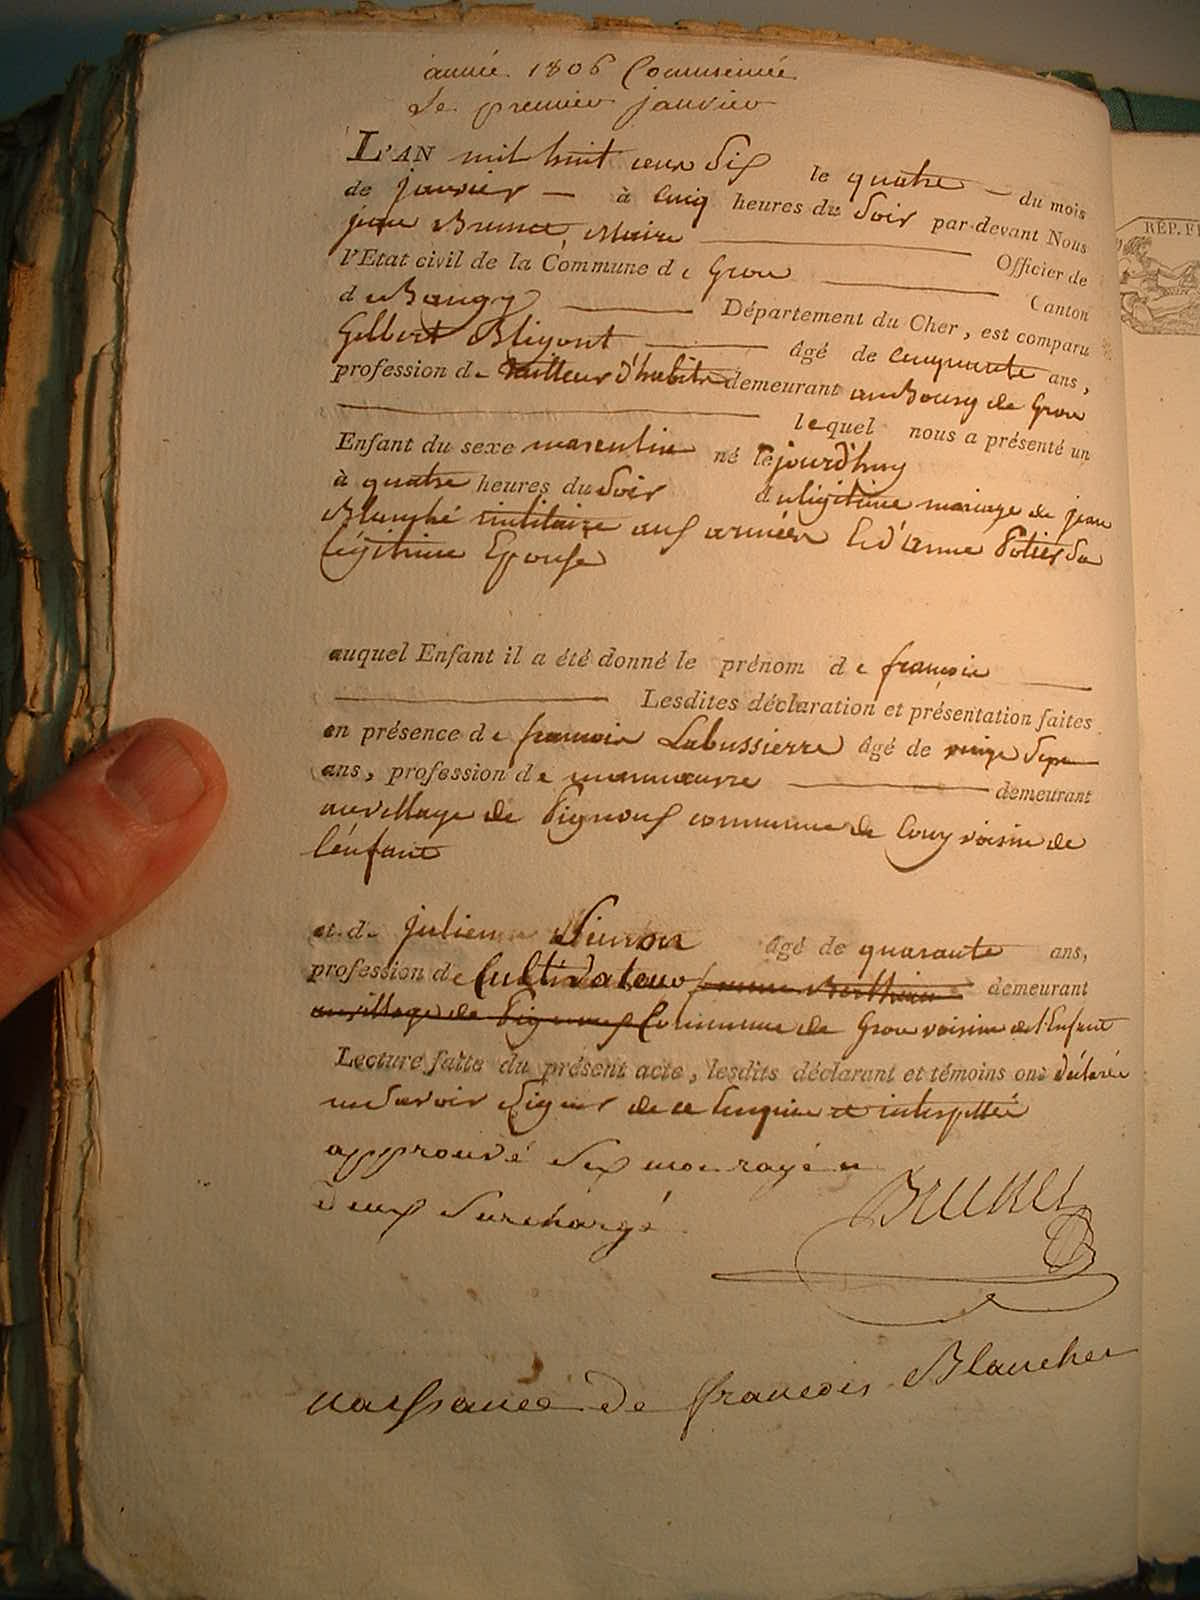 année 1806 Commencée
Le premier janvier
L'AN mil huit cent Six le quatre du mois
de janvier à Cinq heures du Soir par-devant Nous
jean Brunet, Maire Officier de
l'Etat civil de la Commune de Gron Canton
de Baugy Département du Cher, est comparu
Gilbert Bligont âgé de cinquante ans,
profession de tailleur d'habits demeurant au Bourg de Gron
lequel nous a présenté un
Enfant du sexe masculin né le jourd'huy
à quatre heures du Soir du légitime mariage de jean
Blanché militaire aux armées Et d'anne Potier Sa
légitime Epouse
auquel Enfant il a été donné le prénom de françois
Lesdites déclaration et présentation faites
en présence de françois Labussierre âgé de vingt Sept
ans, profession de manœuvre demeurant
au village de Pignoux commune de Couy voisin de
l'enfant
et de julien Simon âgé de quarante ans,
profession de Cultivateur femme Berthier demeurant
au village de Pignoux Commune de Gron voisin de l'Enfant
Lecture faite du présent acte, lesdits déclarant et témoins ont déclaré
ne Savoir Signer de ce Enquis et interpellé
approuvé Six mot rayé et
deux Surchargé
Brunet
RÉP. FR
naissance de françois Blanchet